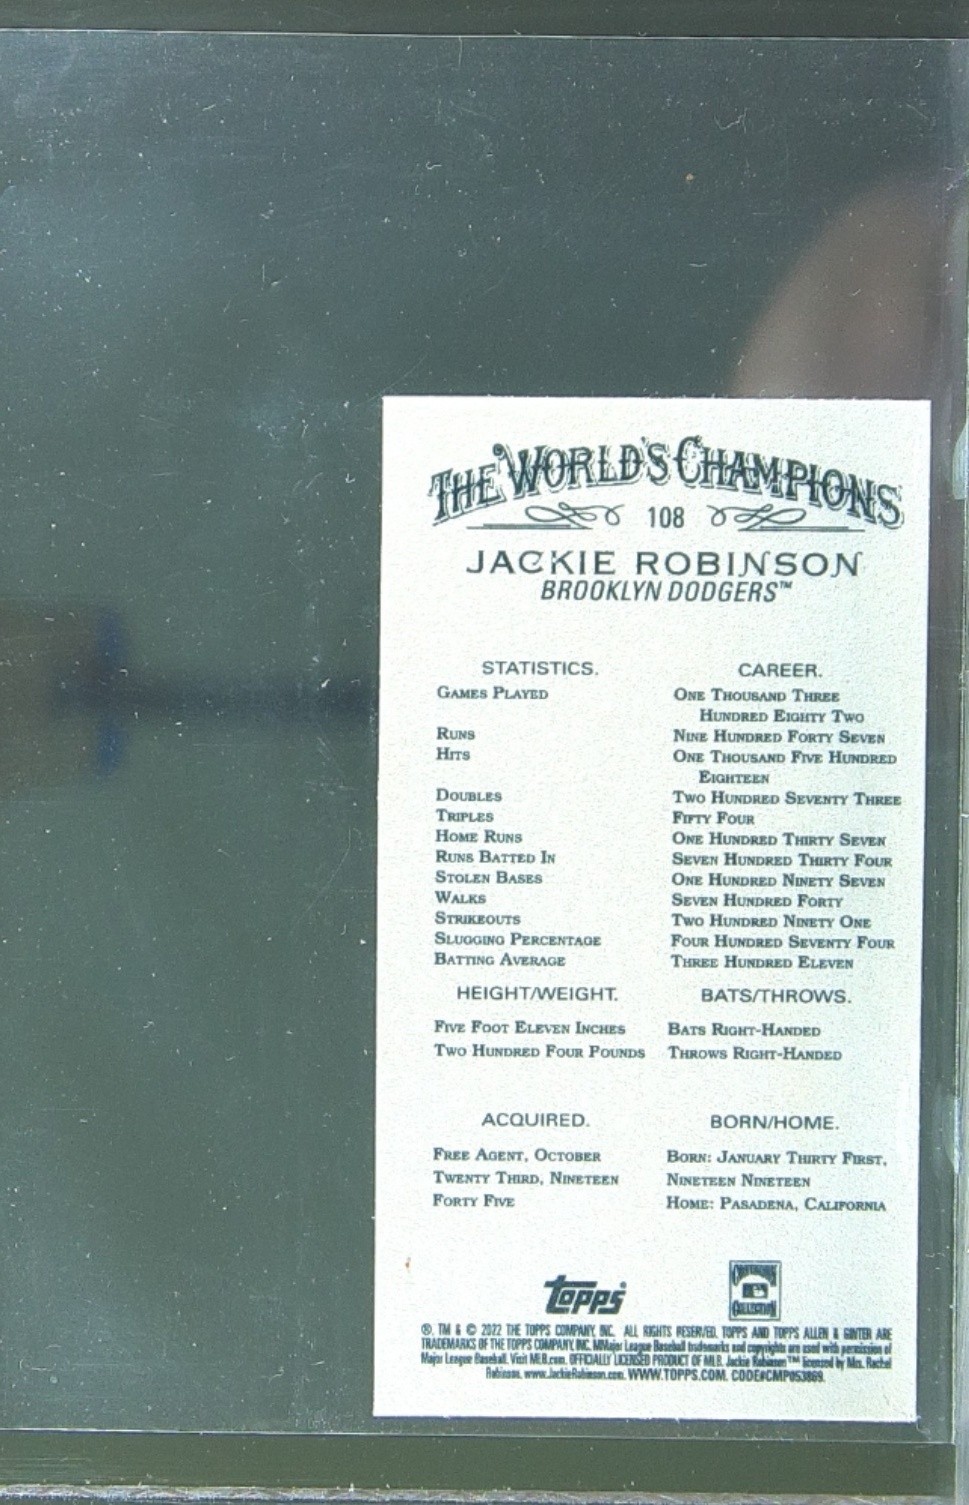 THE WORLD'S CHAMPIONS
108
JACKIE ROBINSON
BROOKLYN DODGERS™
STATISTICS. CAREER.
GAMES PLAYED ONE THOUSAND THREE
HUNDRED EIGHTY TWO
RUNS NINE HUNDRED FORTY SEVEN
HITS ONE THOUSAND FIVE HUNDRED
EIGHTEEN
DOUBLES TWO HUNDRED SEVENTY THREE
TRIPLES FIFTY FOUR
HOME RUNS ONE HUNDRED THIRTY SEVEN
RUNS BATTED IN SEVEN HUNDRED THIRTY FOUR
STOLEN BASES ONE HUNDRED NINETY SEVEN
WALKS SEVEN HUNDRED FORTY
STRIKEOUTS TWO HUNDRED NINETY ONE
SLUGGING PERCENTAGE FOUR HUNDRED SEVENTY FOUR
BATTING AVERAGE THREE HUNDRED ELEVEN
HEIGHT/WEIGHT. BATS/THROWS.
FIVE FOOT ELEVEN INCHES BATS RIGHT-HANDED
TWO HUNDRED FOUR POUNDS THROWS RIGHT-HANDED
ACQUIRED. BORN/HOME.
FREE AGENT, OCTOBER BORN: JANUARY THIRTY FIRST,
TWENTY THIRD, NINETEEN NINETEEN NINETEEN
FORTY FIVE HOME: PASADENA, CALIFORNIA
topps®
COOPERSTOWN
COLLECTION
®, TM & © 2022 THE TOPPS COMPANY, INC. ALL RIGHTS RESERVED. TOPPS AND TOPPS ALLEN & GINTER ARE
TRADEMARKS OF THE TOPPS COMPANY, INC. MMajor League Baseball trademarks and copyrights are used with permission of
Major League Baseball. Visit MLB.com. OFFICIALLY LICENSED PRODUCT OF MLB. Jackie Robinson™ licensed by Mrs. Rachel
Robinson, www.JackieRobinson.com. WWW.TOPPS.COM. CODE#CMP053869.